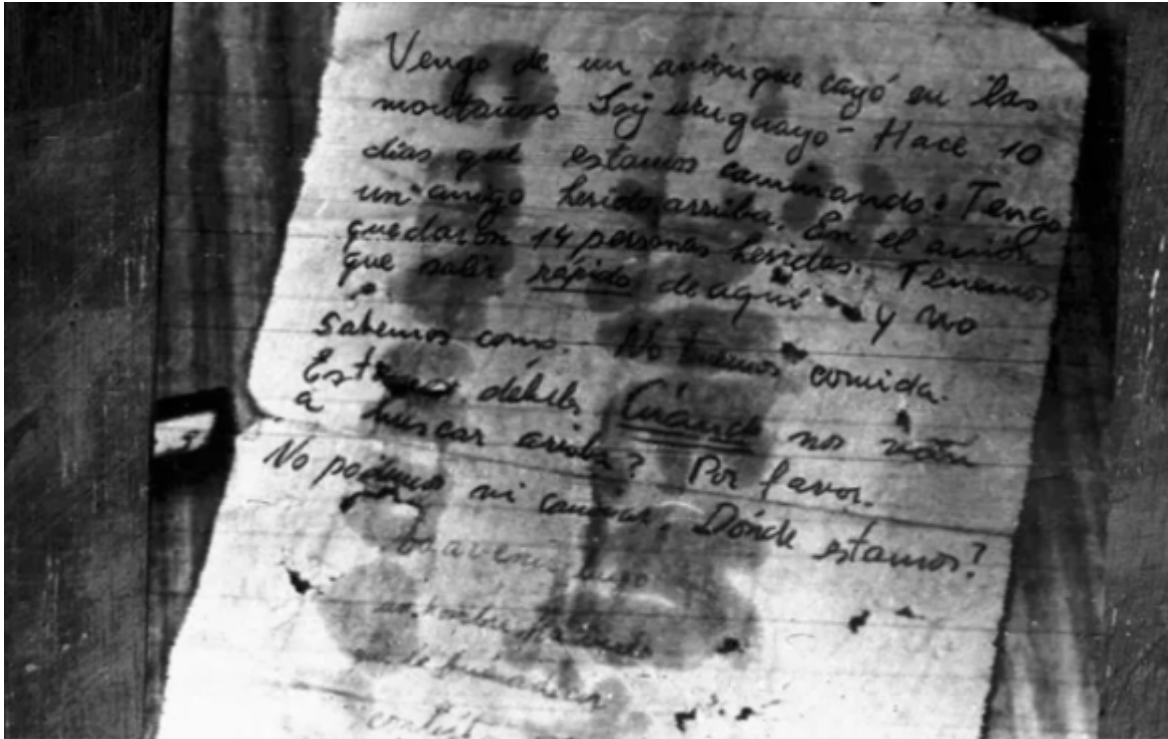 Vengo de un avión que cayó en las
montañas Soy uruguayo - Hace 10
días que estamos caminando. Tengo
un amigo herido arriba. En el avión
quedaron 14 personas heridas. Tenemos
que salir rápido de aquí y no
sabemos como. No tenemos comida.
Estamos débiles. Cuándo nos van
a buscar arriba? Por favor.
No podemos ni caminar. Dónde estamos?